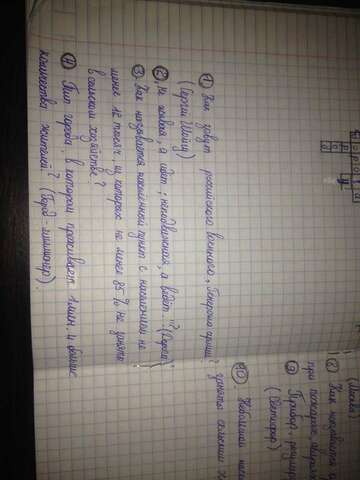 ① Как зовут российского военного, Генерала армии?
(Сергей Шойгу)
②, Не живая, а идёт; неподвижная, а ведёт"? (Дорога)
③. Как называется населённый пункт с населением не
менее 12 тысяч, из которых не менее 85% не заняты
в сельском хозяйстве?
Тип города, в котором проживает 1 млн. и более
количества жителей? (Город-миллионер).
(Москва)
⑧ Как называется
при пожаре
⑨ Прибор,
(Светофор)
⑩. Небольшой
заняты сельским